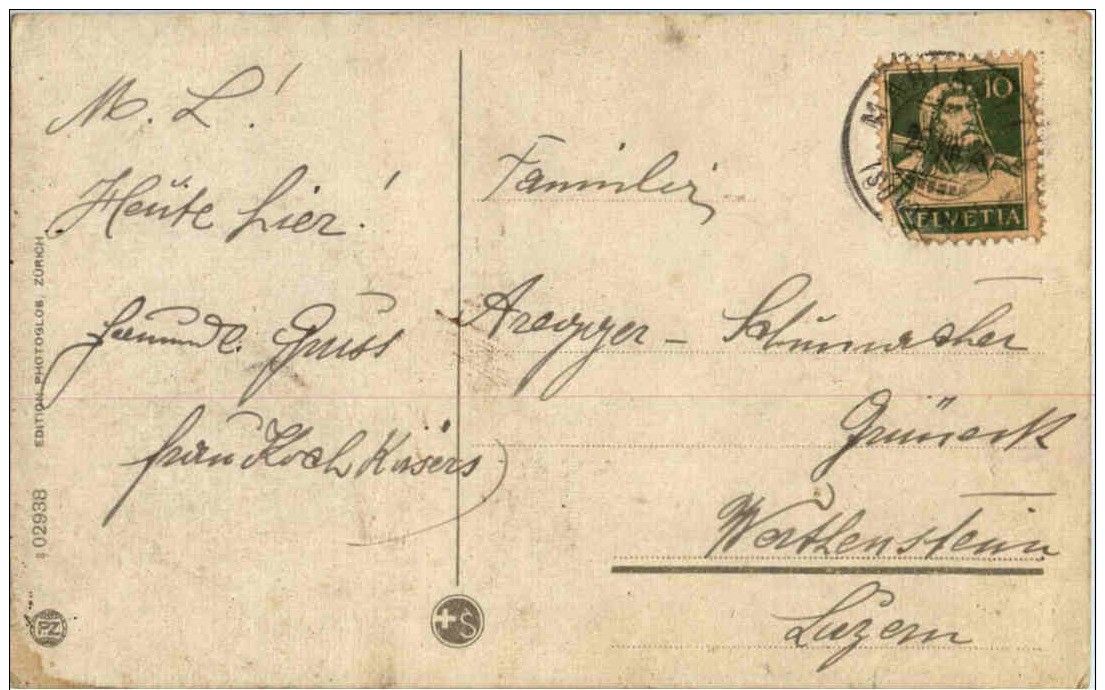 M. L!
Heute hier!
freundl. Gruss
frau Koch Käsers
Familie
Aregger - Schumacher
Grüneck
Werthenstein
Luzern
10
HELVETIA
EDITION PHOTOGLOB, ZÜRICH
02938
PZ
+S